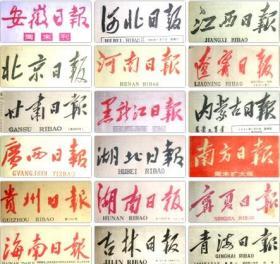 安徽日报
周末刊
河北日报
HEBEI RIBAO
江西日报
JIANGXI RIBAO
北京日報
河南日报
HENAN RIBAO
遼寧日报
LIAONING RIBAO
甘肃日报
GANSU RIBAO
黑龙江日报
内蒙古日报
廣西日报
GVANGJSIH YIZBAO
湖北日报
HUBEI RIBAO
南方日报
周末扩大版
贵州日报
GUIZHOU RIBAO
湖南日報
HUNAN RIBAO
寧夏日报
NINGXIA RIBAO
海南日报
HAINAN RIBAO
吉林日报
JILIN RIBAO
青海日报
QINGHAI RIBAO